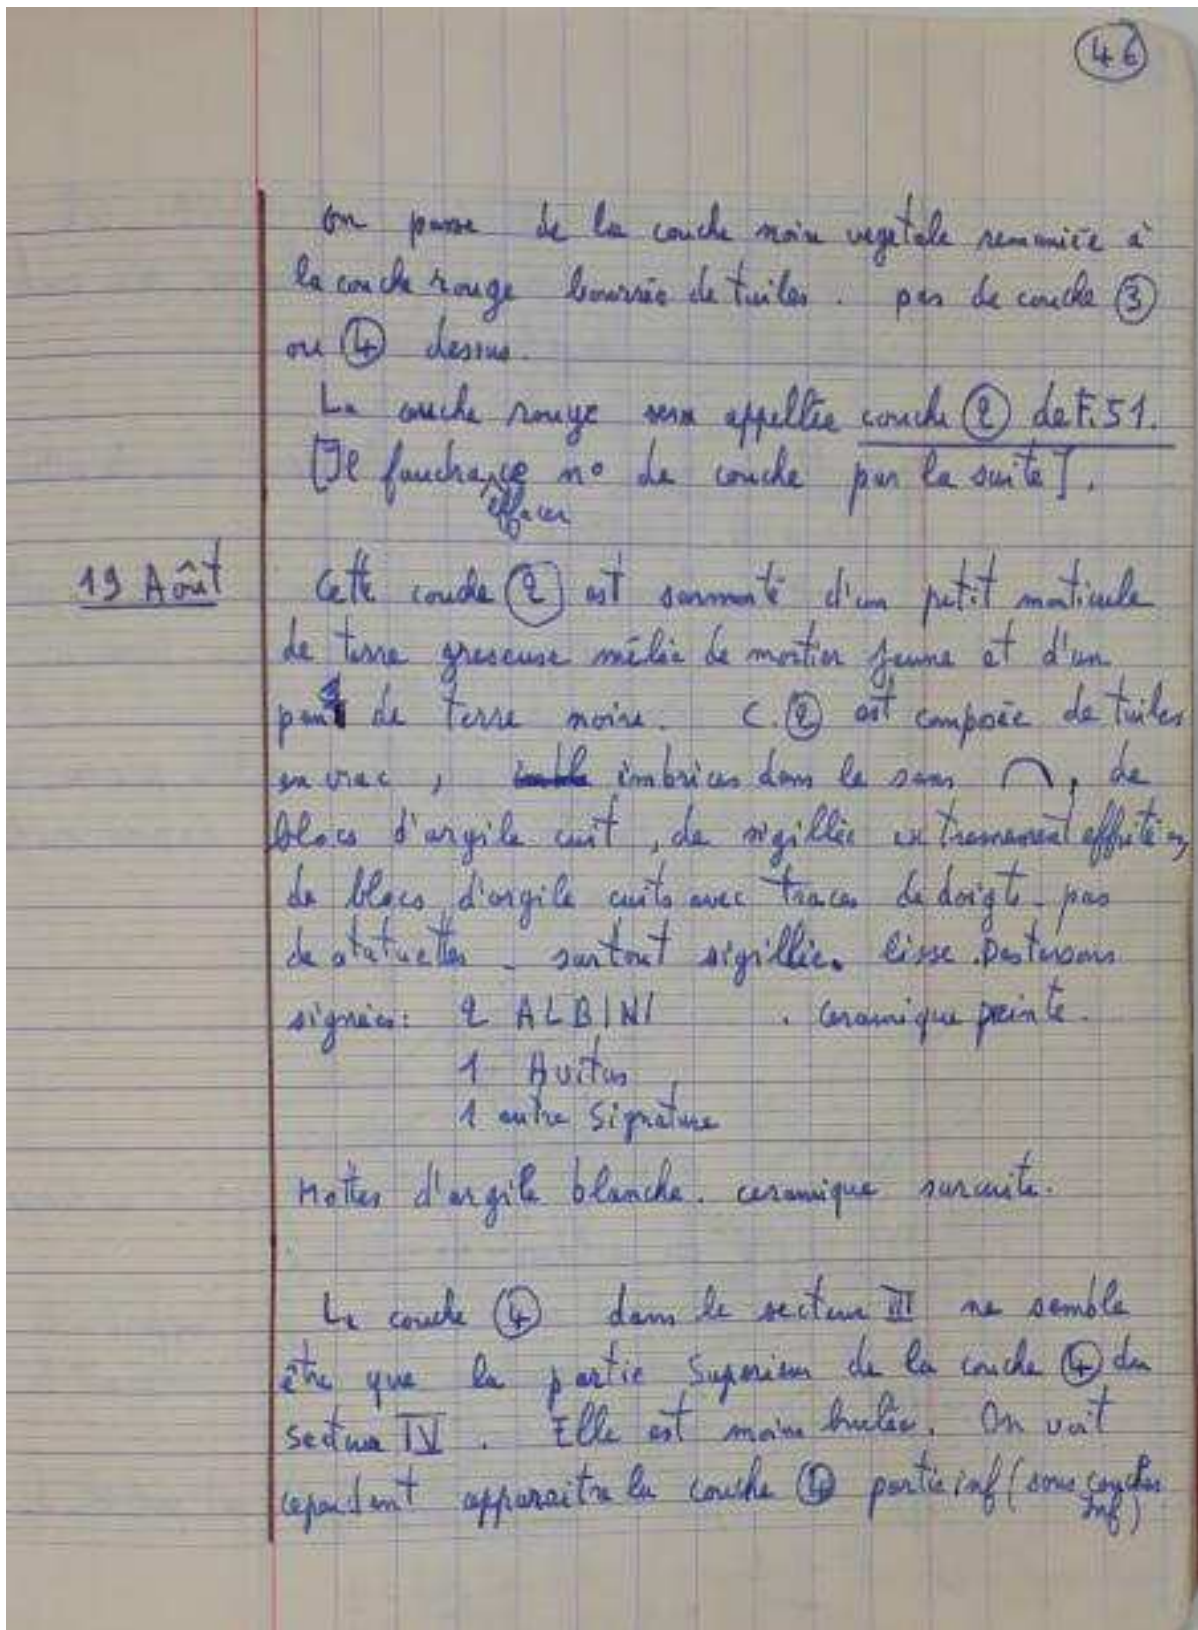 46
On passe de la couche noire vegetale remaniée à
la couche rouge bourrée de tuiles. pas de couche ③
ou ④ dessus.
La couche rouge sera appellée couche ② de F.51.
[Il faudra ce n° de couche par la suite].
effacer
19 Août
Cette couche ② est surmonté d'un petit monticule
de terre greseuse mélée de mortier jaune et d'un
peu de terre noire. C.② est composée de tuiles
en vrac, imbrices dans le sens ⌒, de
blocs d'argile cuit, de sigillée extremement
de blocs d'argile cuits avec traces de doigts - pas
de statuettes - surtout sigillée lisse. Des tessons
signées: 2 ALBINI . Ceramique peinte.
1 Avitus
1 autre Signature
Mottes d'argile blanche. ceramique surcuite.
La couche ④ dans le secteur III ne semble
être que la partie Superieur de la couche ④ du
secteur IV. Elle est moins brulée. On voit
cependant apparaitre la couche ④ partie inf (sous couches
inf)